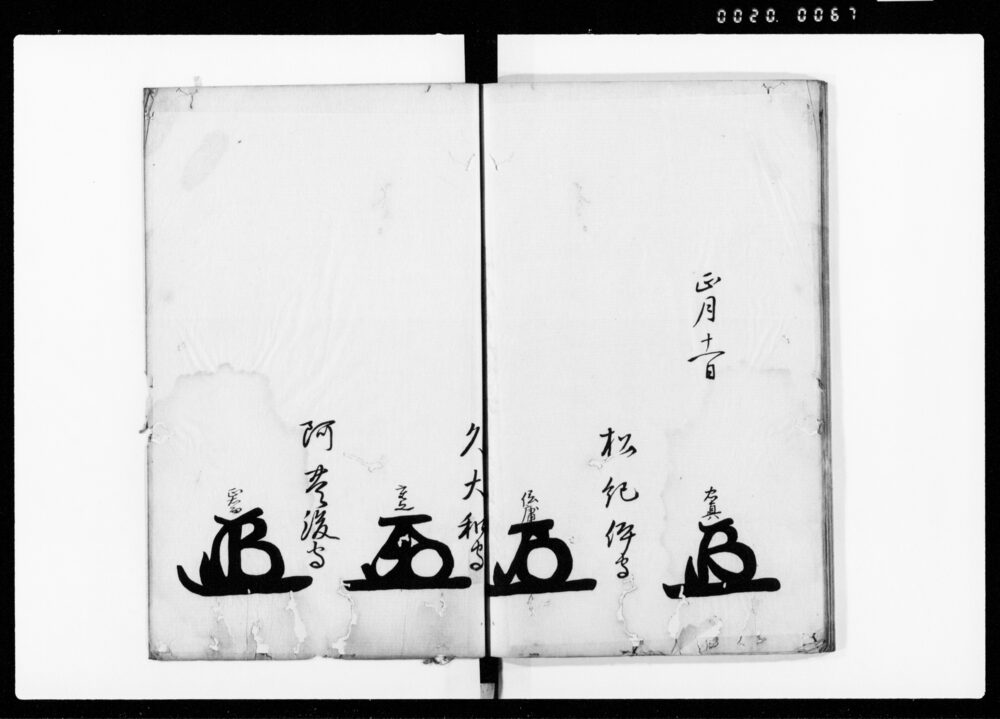 0020. 0067
正月十一日
忠真
松紀伊守
信庸
久大和守
重之
阿豊後守
正喬